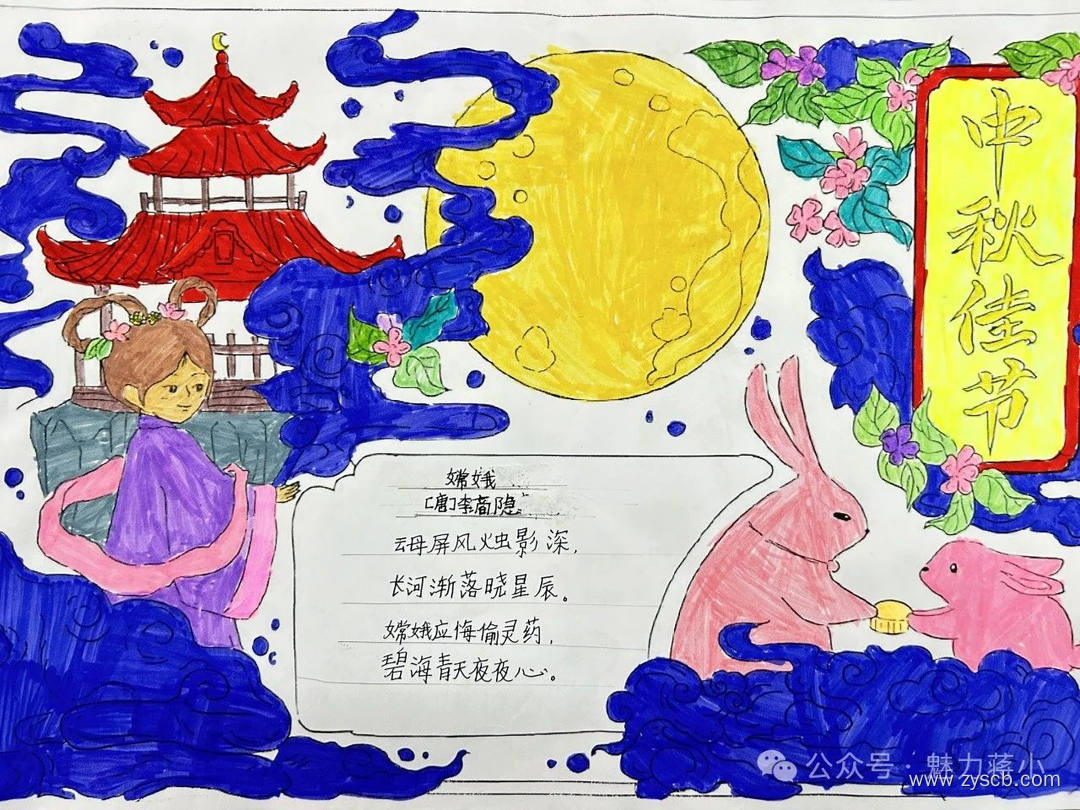 中秋佳节
嫦娥
[唐]李商隐
云母屏风烛影深,
长河渐落晓星辰。
嫦娥应悔偷灵药,
碧海青天夜夜心。
公众号·魅力蒋小
www.zyscb.com